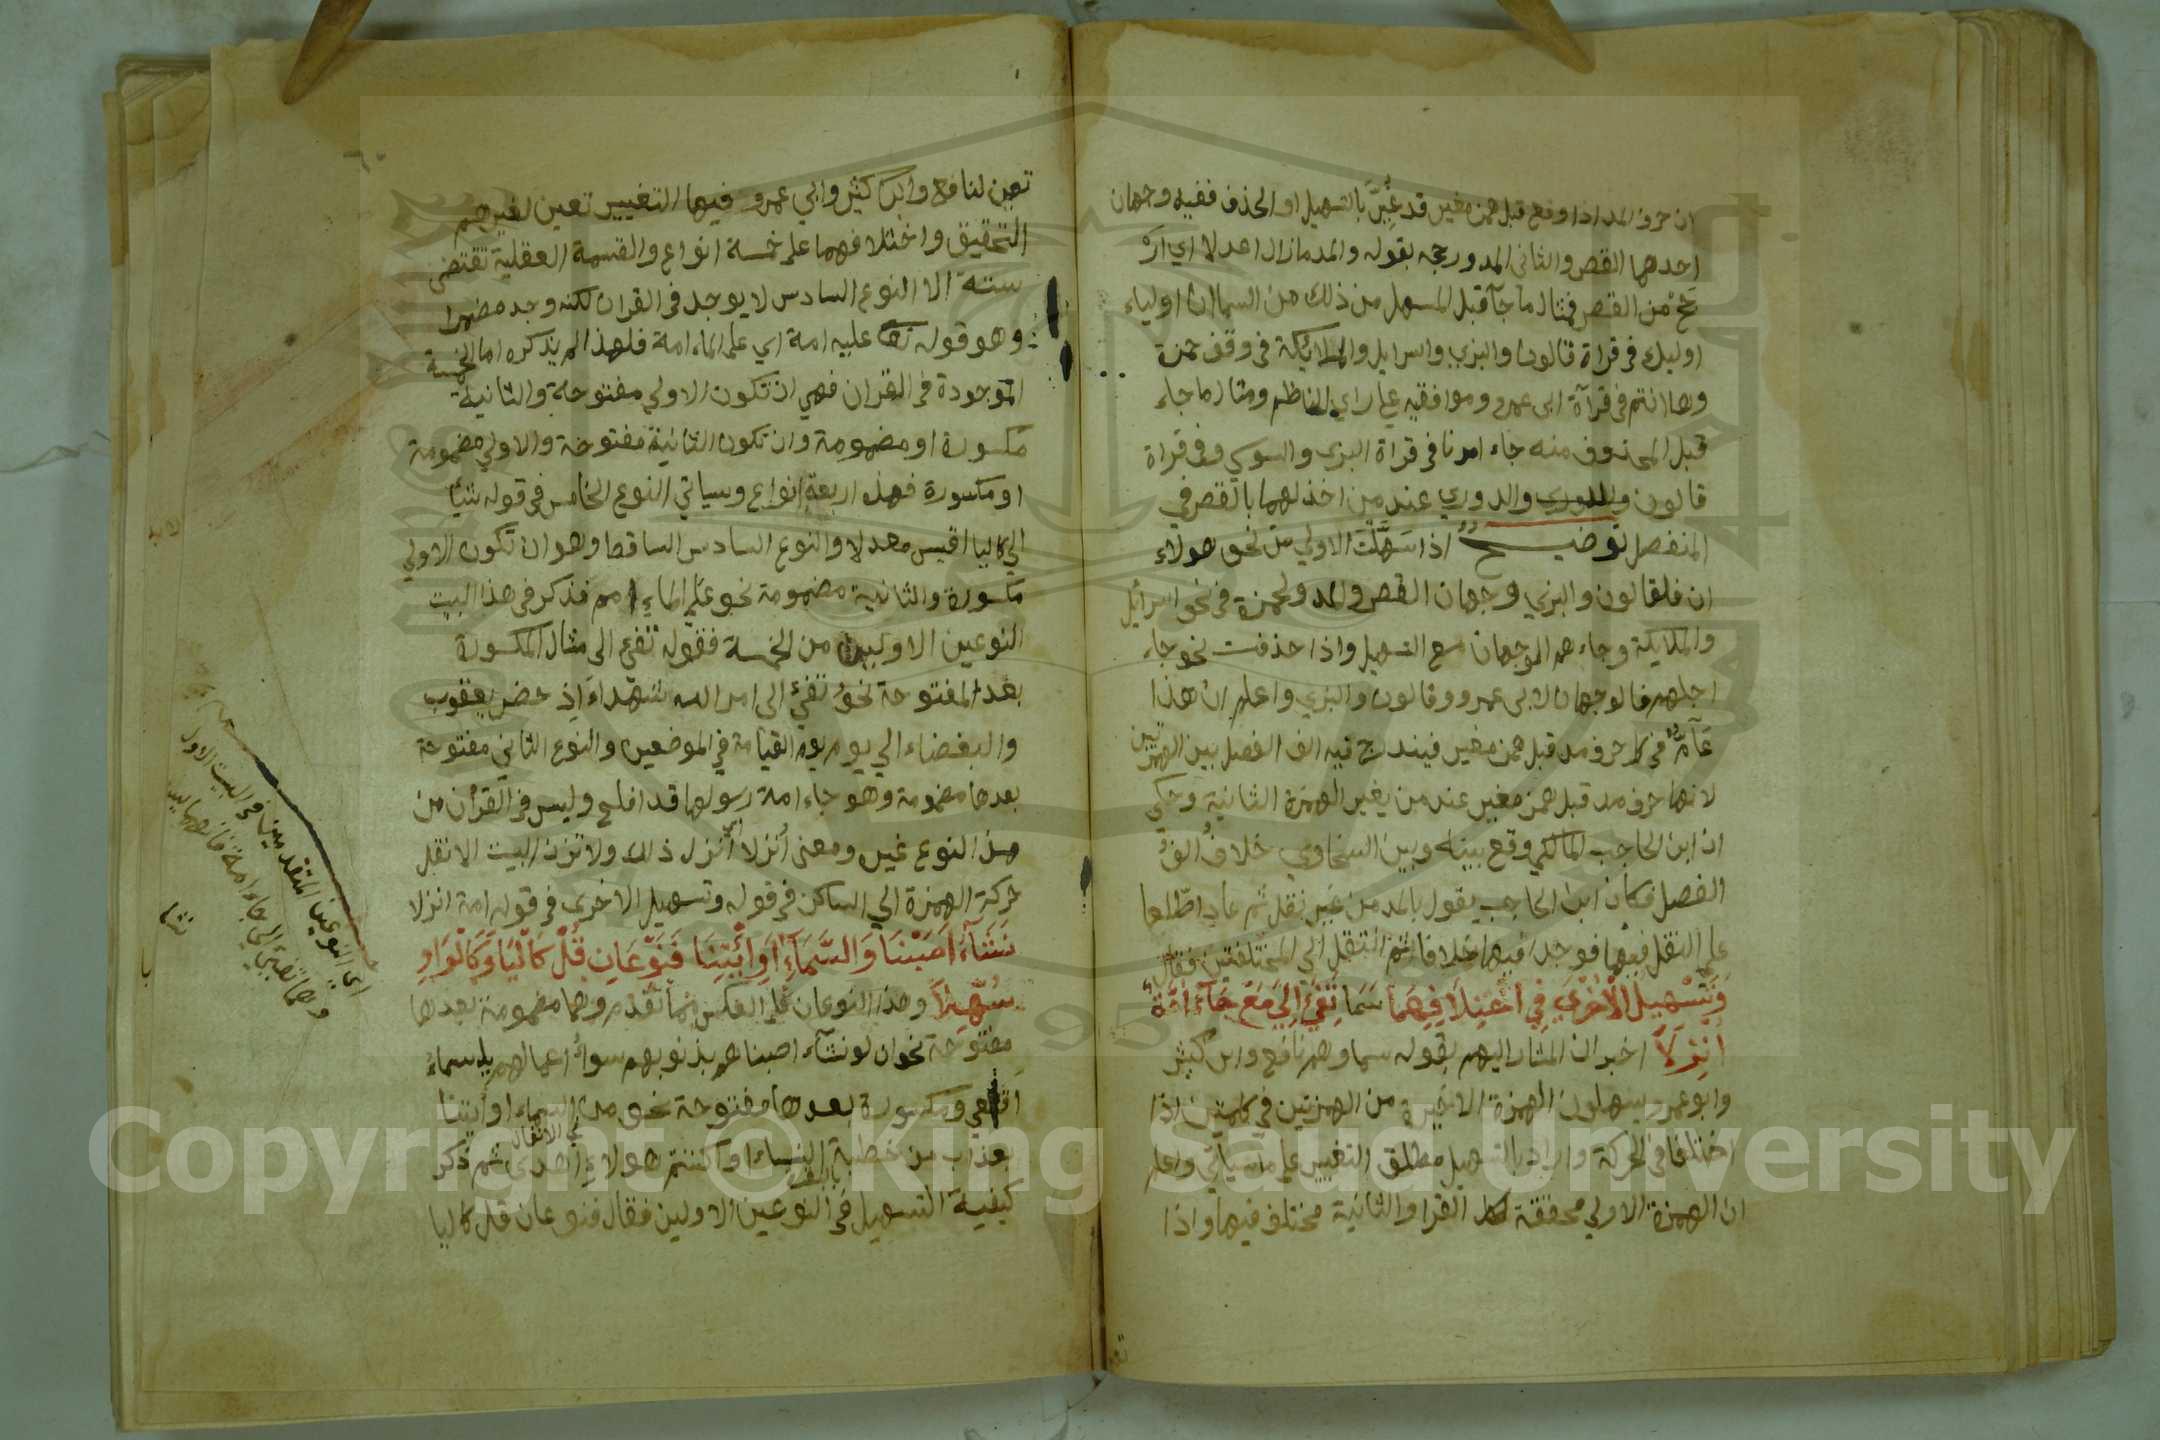 ان حرف المد اذا وقع قبل همز مغير قد غُيِّرَ بالتسهيل او الحذف ففيه وجهان
احدهما القصر والثاني المد ورجحه بقوله والمد مازال اعدلا اي ار
جح من القصر فمثال ما جآ قبل المسهل من ذلك من السماء ان اولياء
اوليك في قراة قالون والبزي واسرايل والملايكة في وقف حمزة
وها انتم في قرآة ابى عمرو وموافقيه على راي الناظم ومثال ما جاء
قبل المحذوف منه جاء امرنا في قراة البزى والسوسي وفي قراة
قالون والدوري عند من اخذ لهما بالقصر في
المنفصل توضيح اذا سَهَّلْتَ الاولي من نحو هولاء
ان فلقالون والبزي وجهان القصر والمد ولحمزة في نحو اسرائل
والملايكة وجاءهم الوجهان مع التسهيل واذا حذفت نحو جاء
اجلهم فالوجهان لابى عمرو وقالون والبزي واعلم ان هذا
عَآمٌّ في كل حرف مد قبل همز مغير فيندرج فيه الف الفصل بين الهمزتين
لانها حرف مد قبل همز مغير عند من يغير الهمزة الثانية وحكي
ان ابن الحاجب المالكي وقع بينه وبين السخاوي خلاف الف
الفصل فكان ابن الحاجب يقول بالمد من غير نقل ثم عاد اطّلعا
على النقل فيها فوجدا فيها خلافا ثم انتقل الي المختلفتين فقال
وَتَسْهِيلُ الْاُخْرَى فِي اخْتِلَافِهِمَا سَمَا تَفِئَ إِلَى مَعْ جَآءَ أُمَّةً
أُنْزِلَا اخبر ان المشار اليهم بقوله سما وهم نافع وابن كثير
وابو عمرو يسهلون الهمزة الاخيرة من الهمزتين في كلمتين اذا
اختلفا في الحركة واراد بالتسهيل مطلق التغيير على ما سياتي واعلم
ان الهمزة الاولي محققة لكل القرا والثانية مختلف فيها واذا
تعين لنافع وابن كثير وابي عمرو فيها التغيير تعين لغيرهم
التحقيق واختلافهما على خمسة انواع والقسمة العقلية تقتضى
ستة الا النوع السادس لا يوجد في القران لكنه وجد مضمرا
وهو قوله عليه امة اي على الماء امة فلهذا لم يذكره اما الخمسة
الموجودة في القران فهي ان تكون الاولي مفتوحة والثانية
مكسورة او مضمومة وان تكون الثانية مفتوحة والاولي مضمومة
او مكسورة فهذه اربعة انواع وسياتي النوع الخامس في قوله يشا
الي كاليا اقيس معدلا والنوع السادس الساقط وهو ان تكون الاولي
مكسورة والثانية مضمومة نحو على الماءِ امم فذكر في هذا البيت
النوعين الاولين من الخمسة فقوله تفئ الى مثال المكسورة
بعد المفتوحة نحو تفئ الى امر الله شهداءَ اِذ حضر يعقوب
والبغضاء الي يوم القيامة في الموضعين والنوع الثاني مفتوحة
بعدها مضمومة وهو جاء امة رسولها قد افلح وليس في القران من
هذا النوع غيره ومعنى أُنزلا أي أنزل ذلك ولا تزن البيت الا بنقل
حركة الهمزة الي الساكن في قوله وتسهيل الاخرى في قوله امة انزلا
نَشَآءُ أَصَبْنَا وَالسَّمَآءِ أَوِ ائْتِنَا فَنَوْعَانِ قُلْ كَالْيَا وَكَالْوَاوِ
سُهِّلَا وهذا النوعان على العكس مما تقدم وهما مضمومة بعدها
مفتوحة نحو ان لو نشآء اصبناهم بذنوبهم سوءُ اعمالهم يا سماءُ
اقلعي ومكسورة بعدها مفتوحة نحو من السماء او ايتنا
في الانفال
بعذاب من خطبة النساء او اكننتم هولاءِ أهدى ثم ذكر
بالبقرة
كيفية التسهيل في النوعين الاولين فقال فنوعان قل كاليا
اي النوعين المتقدمين في البيت الاول
وهما تفئ الى وجاء امة